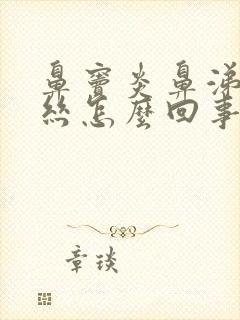 鼻竇炎鼻涕
絲怎麼回事
章琰